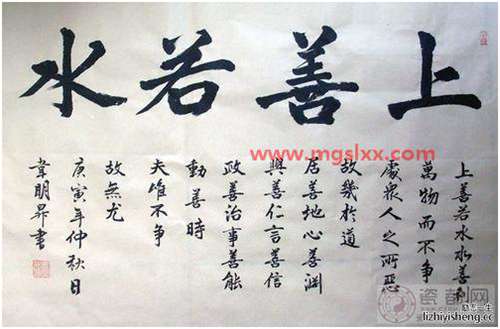 上善若水
上善若水水善利
萬物而不争
處衆人之所恶
故幾於道
居善地心善渊
與善仁言善信
政善治事善能
動善時
夫唯不争
故無尤
庚寅年仲秋日
韋明昇書
www.mgslxx.com
瓷都网
励志一生
lizhiyisheng.cc